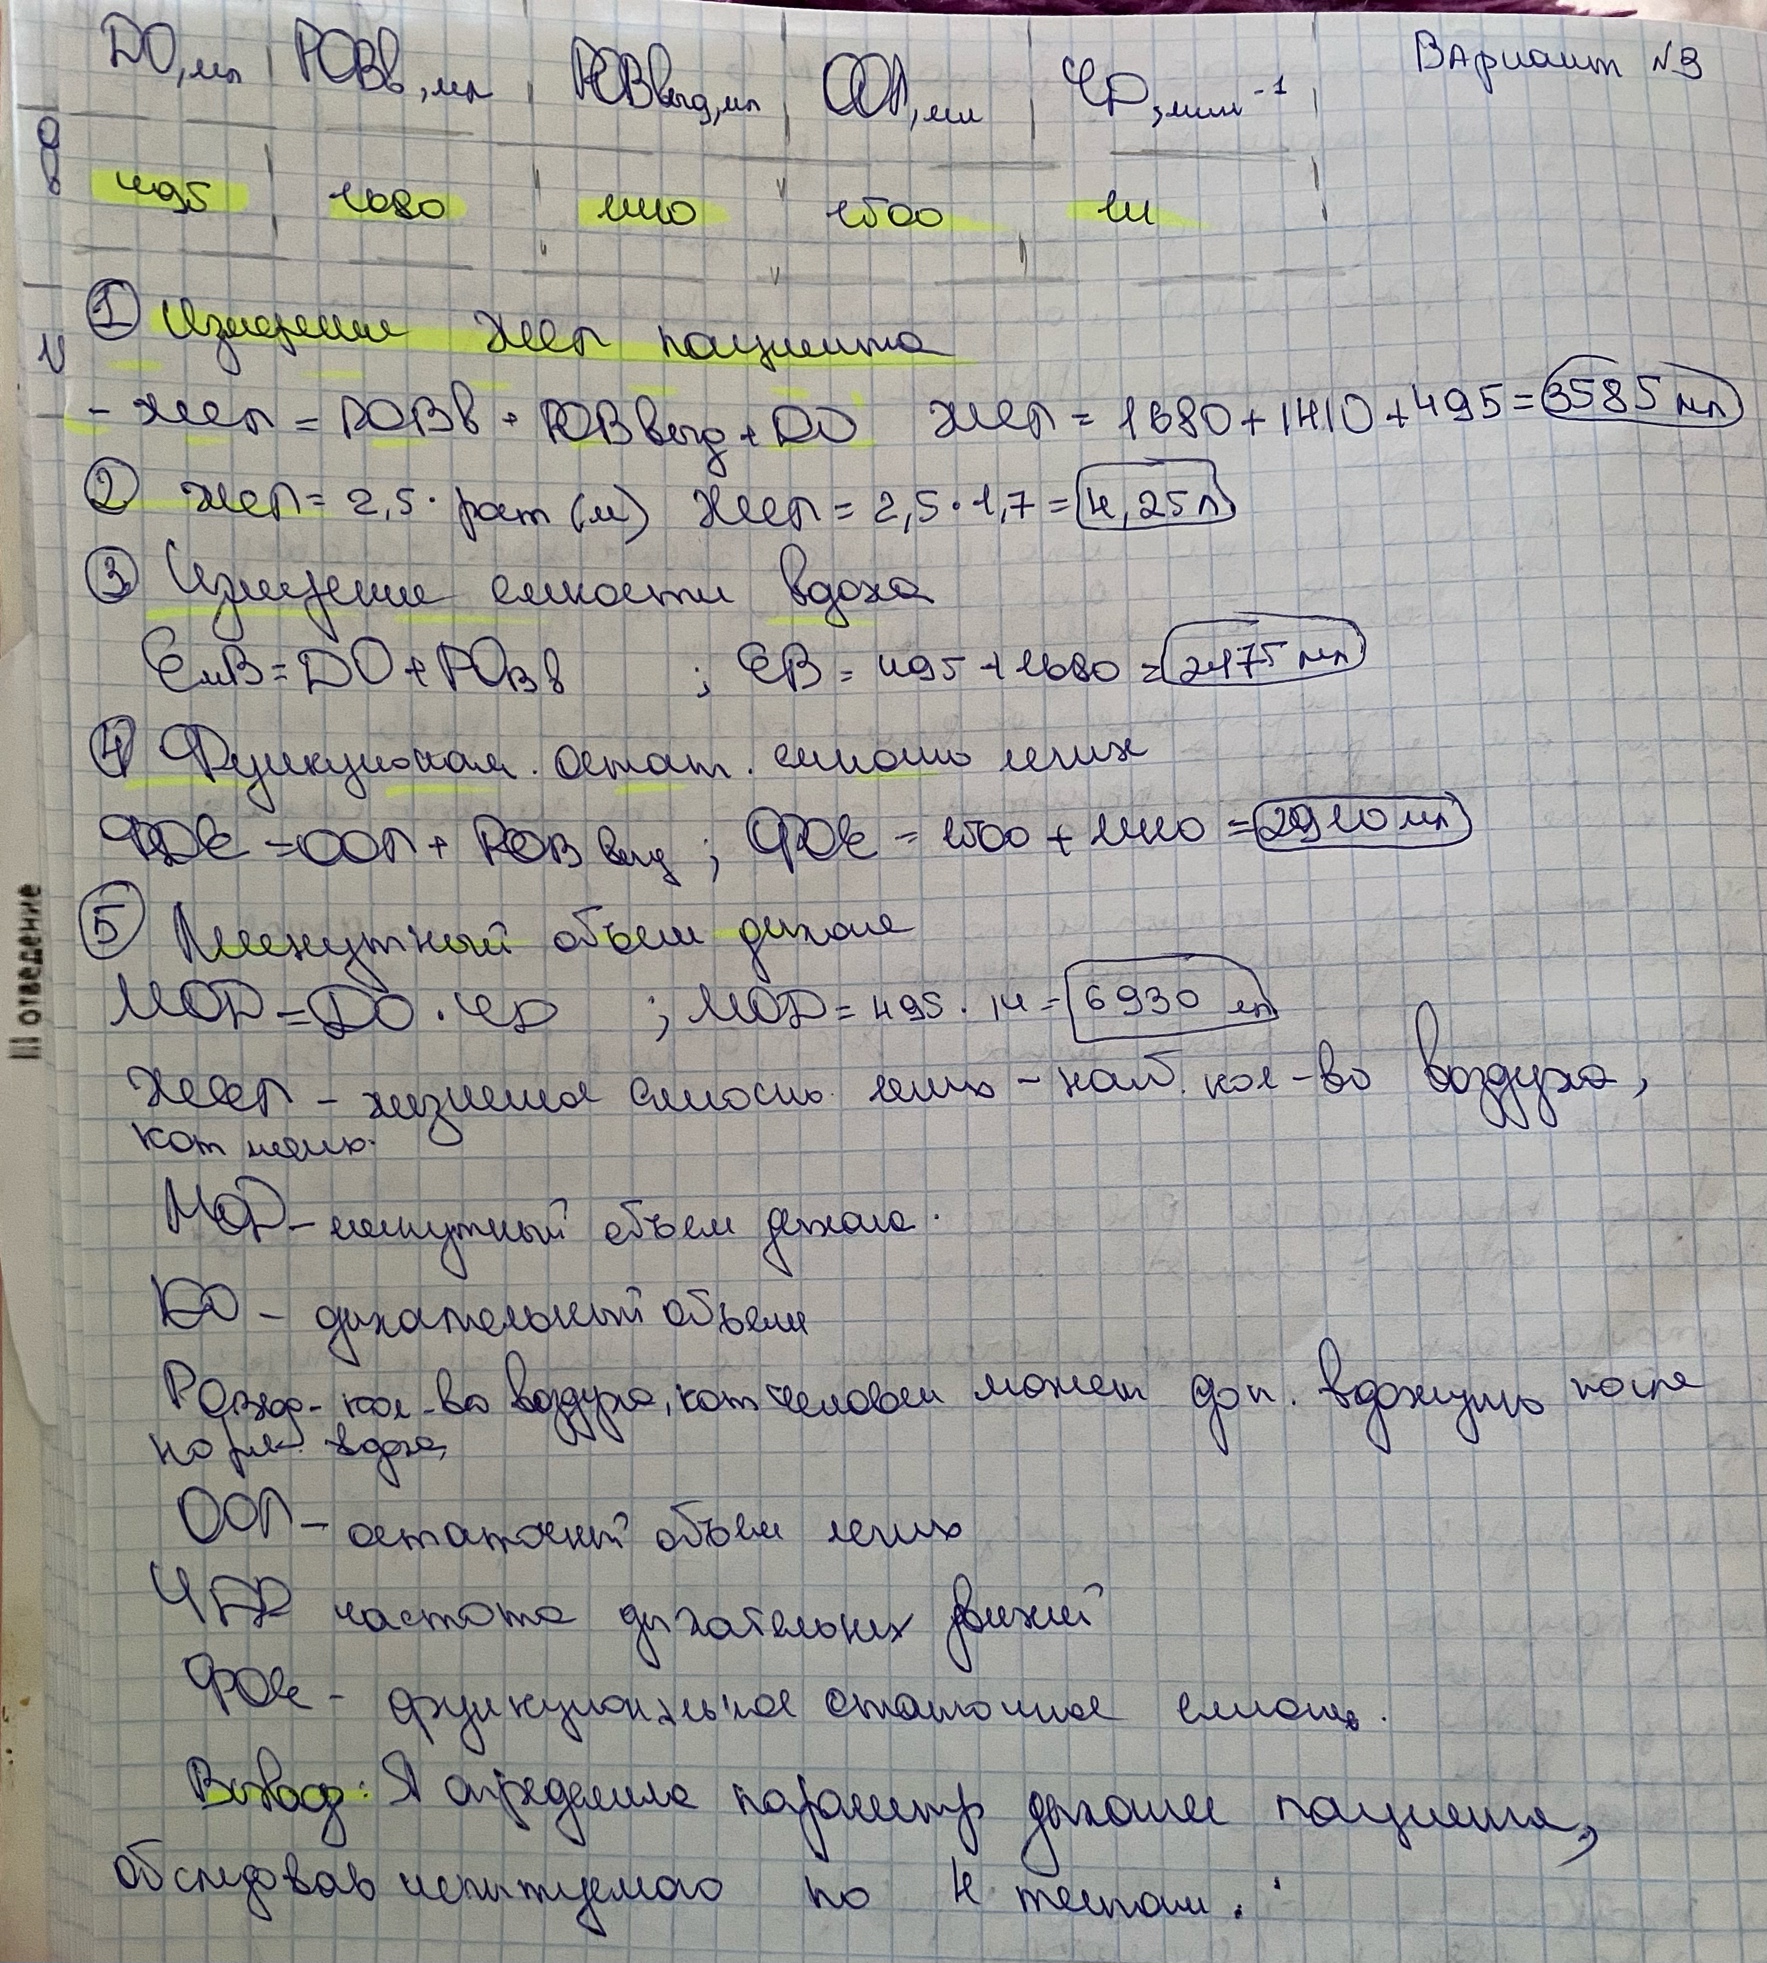 ДО, мл | РОВв, мл | РОВвыд, мл | ООЛ, мл | ЧД, мин⁻¹ | Вариант №3
495 1680 1410 1500 14
① Измерение ЖЕЛ пациента
- ЖЕЛ = РОВв + РОВвыд + ДО ЖЕЛ = 1680 + 1410 + 495 = 3585 мл
② ЖЕЛ = 2,5 · рост (м) ЖЕЛ = 2,5 · 1,7 = 4,25 л
③ Измерение емкости вдоха
ЕмВ = ДО + РОВв ; ЕВ = 495 + 1680 = 2175 мл
④ Функционал. остат. емкость легких
ФОЕ = ООЛ + РОВвыд ; ФОЕ = 1500 + 1410 = 2910 мл
⑤ Минутный объем дыхания
МОД = ДО · ЧД ; МОД = 495 · 14 = 6930 мл
ЖЕЛ – жизненная емкость легких – наиб. кол-во воздуха,
кот
МОД – минутный объем дыхания.
ДО – дыхательный объем
РОвд - кол-во воздуха, кот человек может доп. вдохнуть после
норм. вдоха
ООЛ – остаточный объем легких
ЧДД частота дыхательных движений
ФОЕ – функциональная остаточная емкость.
Вывод: Я определила параметр дыхания пациента,
обследовав испытуемого по 4 тестам.
III отведение